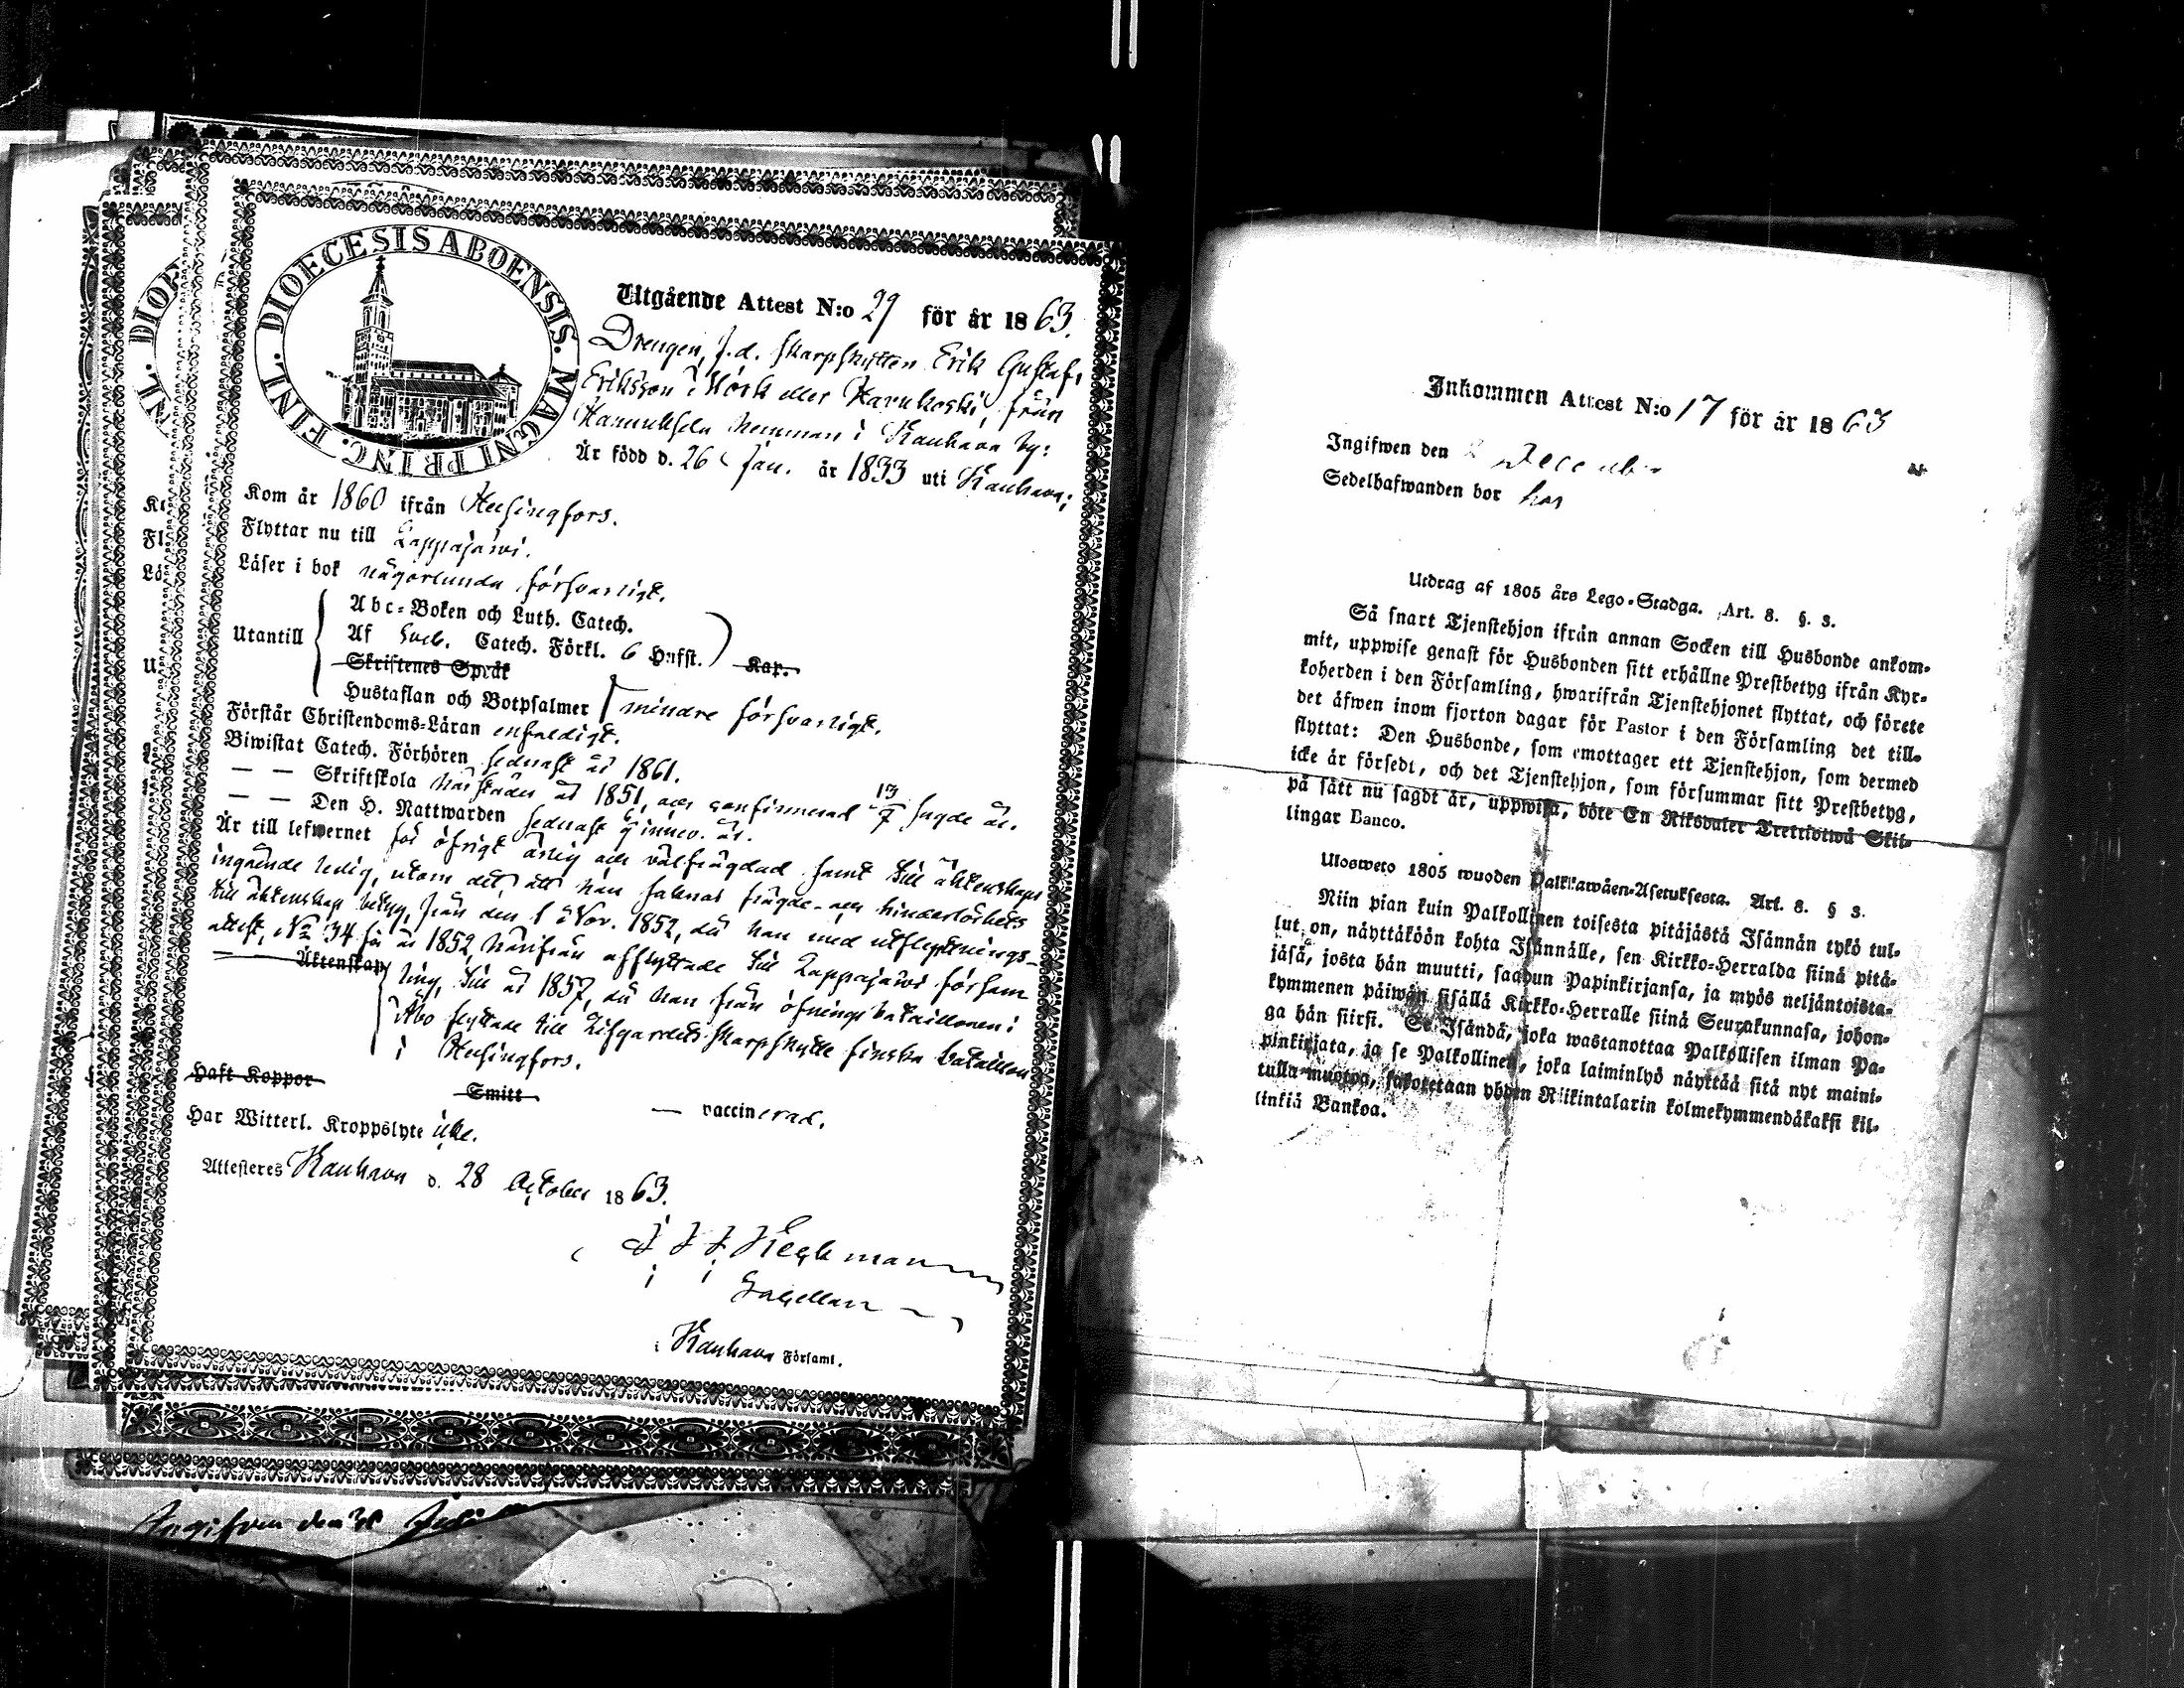 DIOECESIS ABOENSIS. MAGNI PRINC. FINL.
Utgående Attest N:o 29 för år 1863.
Drengen, f.d. Skarpskytten Erik Gustaf
Eriksson Kårk eller Karukoski, från
hemman i Kauhava by:
Är född d. 26 Jan. år 1833 uti Kauhava;
Kom år 1860 ifrån Helsingfors.
Flyttar nu till Lappajärwi.
Läser i bok någorlunda försvarligt.
Utantill
Abc-Boken och Luth. Catech.
Af Sueb. Catech. Förkl. 6 Hufst. Kap.
Skriftenes Språk
Hustaflan och Botpsalmer mindre försvarligt.
Förstår Christendoms-Läran enfaldigt.
Biwistat Catech. Förhören sednast år 1861.
— — Skriftskola härstädes år 1851, och confirmerad 13/7 sagde år.
— — Den H. Nattwarden sednast i innev. år.
Är till lefwernet för öfrigt ärlig och välfrägdad samt till äktenskaps
ingående ledig, utom det, att han saknar frägde- och hinderlöshets
till äktenskap betyg, från den 1 Nov. 1852, då han med utflyttnings-
attest, No 34 för år 1852, härifrån afflyttade till Lappajärwi försam-
Äktenskap ling, till år 1857, då han från öfnings bataillonen i
Åbo flyttade till Lifgardets Skarpskytte finska bataillon
i Helsingfors.
Haft Koppor
Smitt — vaccinerad.
Har Witterl. Kroppslyte icke.
Attesteres Kauhava d. 28 October 1863.
Heckman
Capellan
Kauhava Församl.
Angifven den
Inkommen Attest N:o 17 för år 1863
Ingifwen den December
Sedelhafwanden bor hos
Utdrag af 1805 års Lego-Stadga. Art. 8. §. 3.
Så snart Tjenstehjon ifrån annan Socken till Husbonde ankom-
mit, uppwise genast för Husbonden sitt erhållne Prestbetyg ifrån Kyr-
koherden i den Församling, hwarifrån Tjenstehjonet flyttat, och förete
det äfwen inom fjorton dagar för Pastor i den Församling det till-
flyttat: Den Husbonde, som emottager ett Tjenstehjon, som dermed
icke är försedt, och det Tjenstehjon, som försummar sitt Prestbetyg,
på sätt nu sagdt är, uppwisa, böte En Riksdaler Trettiotwå Skil-
lingar Banco.
Ulosweto 1805 wuoden Palkkawäen-Asetuksesta. Art. 8. § 3.
Niin pian kuin Palkollinen toisesta pitäjästä Isännän tykö tul-
lut on, näyttäköön kohta Isännälle, sen Kirkko-Herralda siinä pitä-
jäsä, josta hän muutti, saadun Papinkirjansa, ja myös neljäntoista-
kymmenen päiwän sisällä Kirkko-Herralle siinä Seurakunnasa, johon-
ga hän siirsi. Se Isändä, joka wastanottaa Palkollisen ilman Pa-
pinkirjata, ja se Palkollinen, joka laiminlyö näyttää sitä nyt maini-
tulla muotoa, sakotetaan yhden Riikintalarin kolmekymmendäkaksi kil-
linkiä Bankoa.